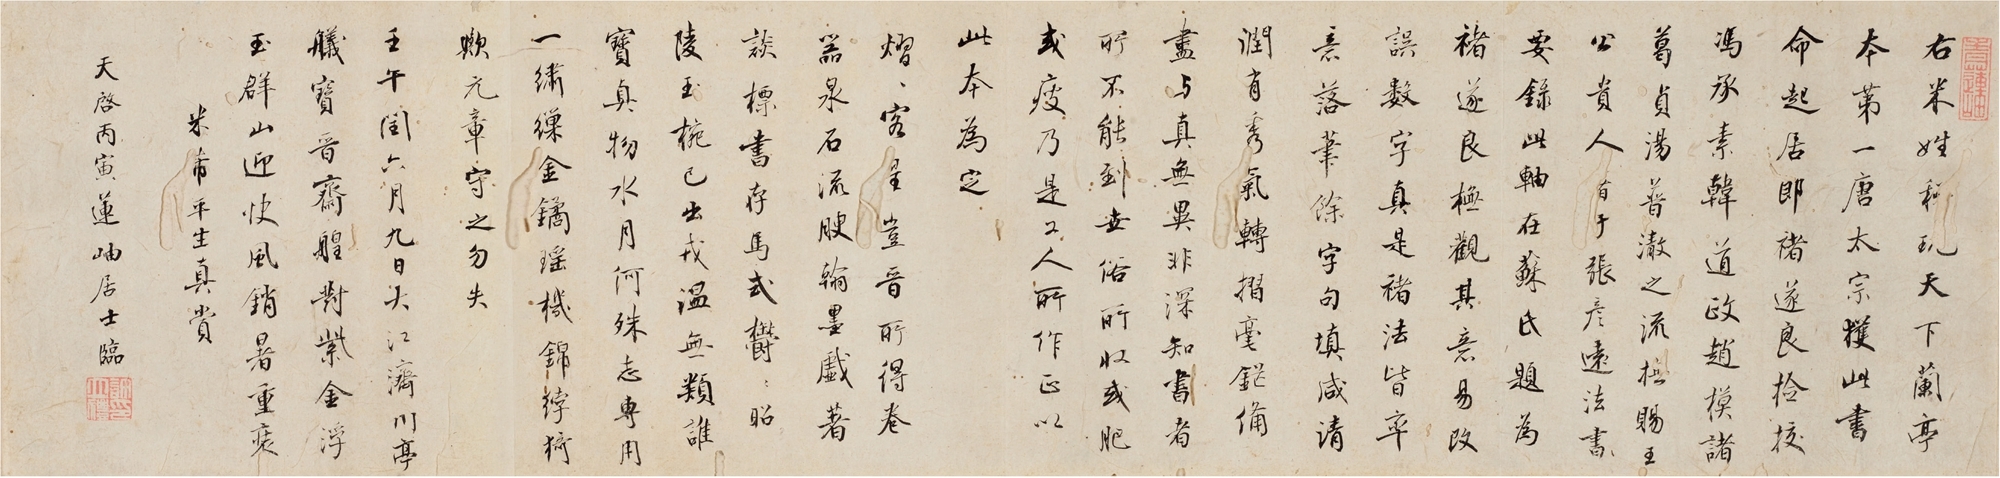 右米姓秘玩天下蘭亭
本第一唐太宗獲此書
命起居郎褚遂良拾挍
馮承素韓道政趙模諸
葛貞湯普澈之流模賜王
公貴人有于張彦遠法書
要錄此軸在蘇氏題為
褚遂良模觀其意易改
誤数字真是褚法皆率
意落筆餘字句填咸清
潤有秀氣轉摺毫鋩備
盡与真無異非深知書者
所不能到世俗所收或肥
或瘦乃是工人所作正以
此本為定
熠〻客星豈晋所得卷
器泉石流腴翰墨戲著
談標書存馬式欝〻昭
陵玉椀已出戎温無類誰
寶真物水月何殊志専用
一繡繅金鐍瑶機錦綍猗
歟元章守之勿失
壬午閏六月九日大江濟川亭
艤寶晋齋艎對紫金浮
玉群山迎快風銷暑重裝
米芾平生真賞
天啓丙寅蓮岫居士臨